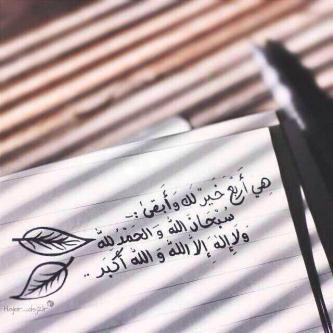 هِيَ أَرْبَعٌ خَيْرٌ لَهُ وَأَبْقَىٰ :
سُبْحَانَ اللّٰه وَ الْحَمْدُ للّٰه
وَلَا إِلٰهَ إِلَّا اللّٰه وَ اللّٰه أَكْبَر ..